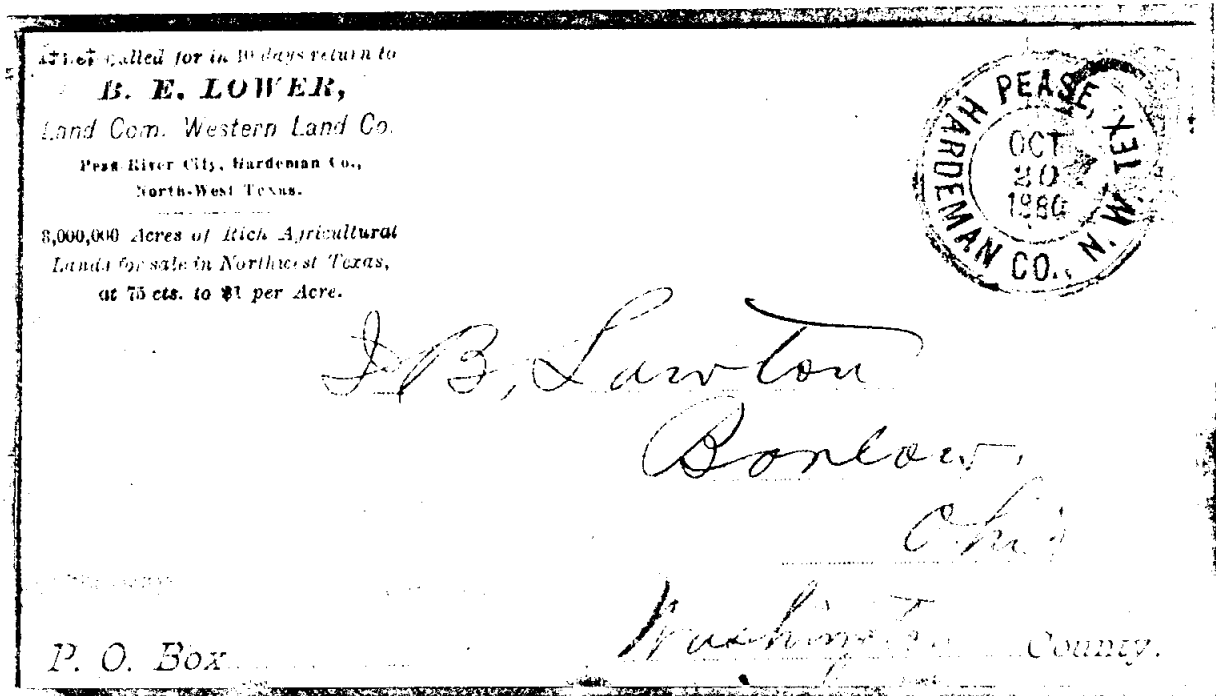 If not called for in 10 days return to
B. E. LOWER,
Land Com. Western Land Co.
Peas River City, Hardeman Co.,
North-West Texas.
8,000,000 Acres of Rich Agricultural
Lands for sale in Northwest Texas,
at 75 cts. to $1 per Acre.
PEASE,
HARDEMAN CO., N.W. TEX.
OCT
20
1880
I B, Lawton
Bonlow,
Ohio
Washington County.
P. O. Box